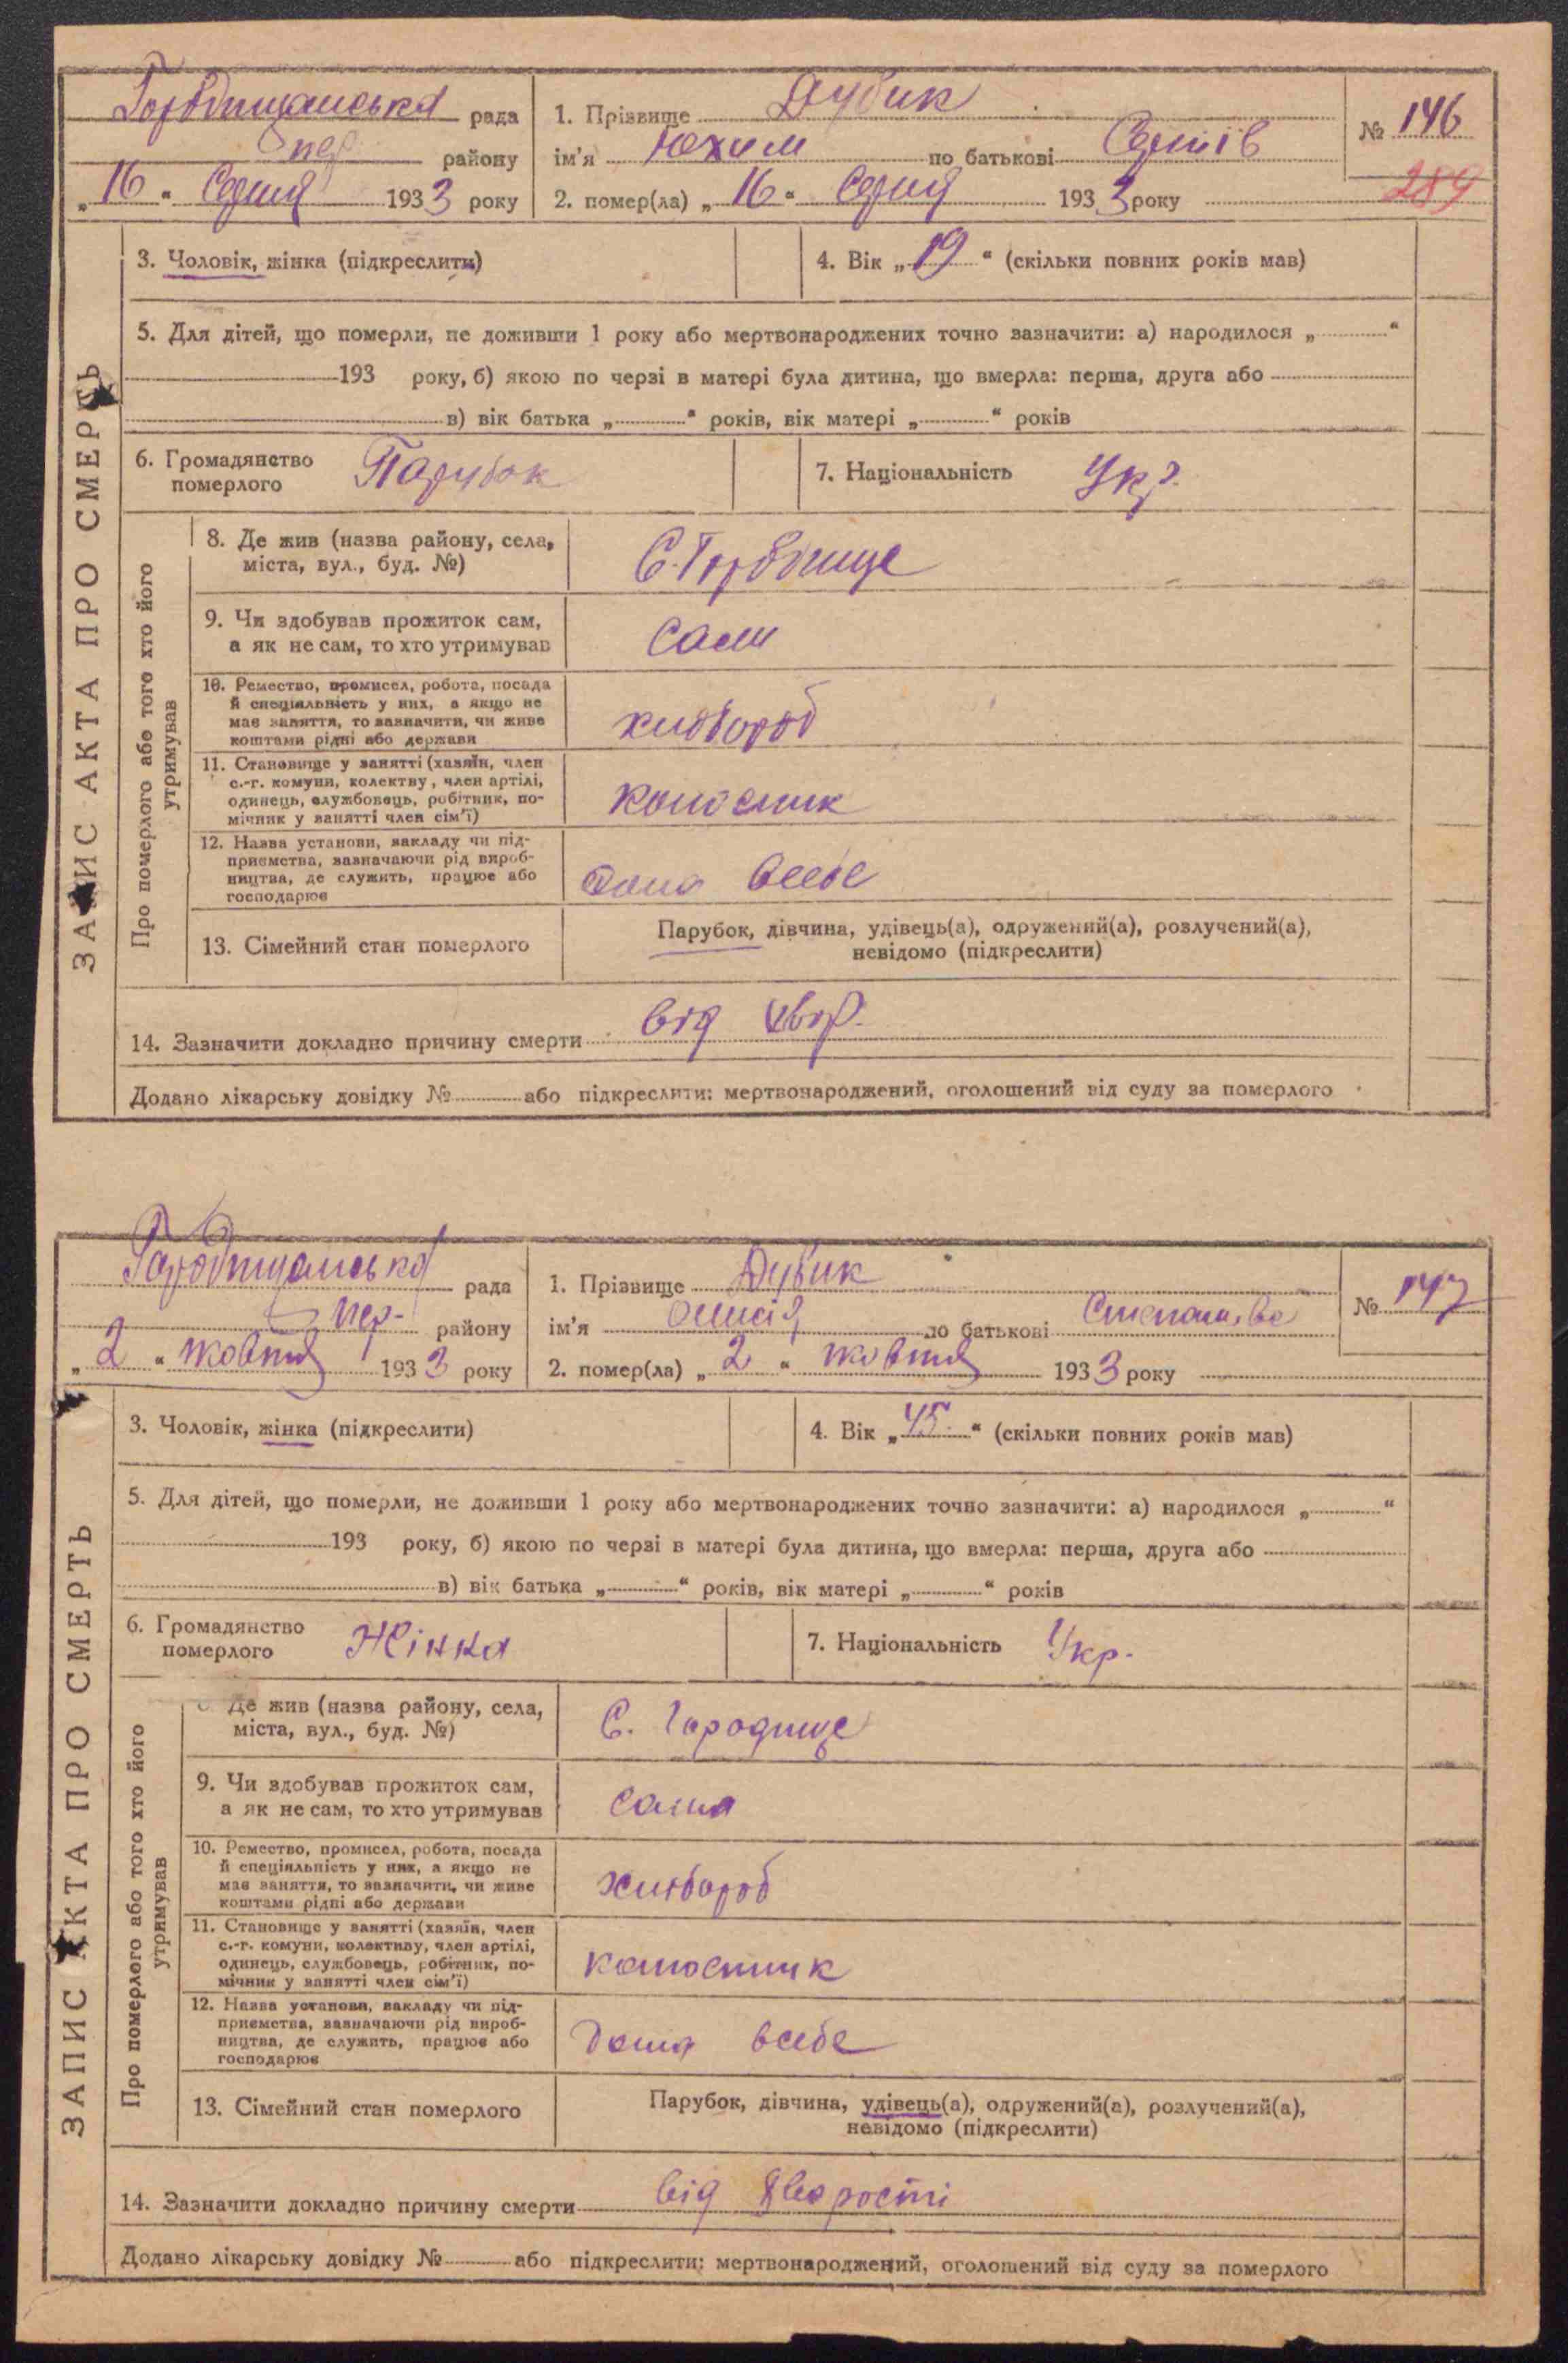 Городищанська рада
пер. району
„16“ Серпня 1933 року
1. Прізвище Дубик
ім’я Юхим по батькові
2. помер(ла) „16“ Серпня 1933 року
№ 146
289
ЗАПИС АКТА ПРО СМЕРТЬ
3. Чоловік, жінка (підкреслити)
4. Вік „19“ (скільки повних років мав)
5. Для дітей, що померли, не доживши 1 року або мертвонароджених точно зазначити: а) народилося „ “
193 року, б) якою по черзі в матері була дитина, що вмерла: перша, друга або
в) вік батька „ “ років, вік матері „ “ років
6. Громадянство
померлого Парубок
7. Національність Укр.
Про померлого або того хто його
утримував
8. Де жив (назва району, села,
міста, вул., буд. №) С. Городище
9. Чи здобував прожиток сам,
а як не сам, то хто утримував сам
10. Ремество, промисел, робота, посада
й спеціяльність у них, а якщо не
має заняття, то зазначити, чи живе
коштами рідні або держави хлібороб
11. Становище у занятті (хазяїн, член
с.-г. комуни, колектву, член артілі,
одинець, службовець, робітник, по-
мічник у занятті член сім’ї)
12. Назва установи, закладу чи під-
приємства, зазначаючи рід вироб-
ництва, де служить, працює або
господарює дома всебе
13. Сімейний стан померлого
Парубок, дівчина, удівець(а), одружений(а), розлучений(а),
невідомо (підкреслити)
14. Зазначити докладно причину смерти від хвор.
Додано лікарську довідку № або підкреслити: мертвонароджений, оголошений від суду за померлого
Городищанська рада
пер. району
„2“ жовтня 1933 року
1. Прізвище Дубик
ім’я по батькові
2. помер(ла) „2“ жовтня 1933 року
№ 147
ЗАПИС АКТА ПРО СМЕРТЬ
3. Чоловік, жінка (підкреслити)
4. Вік „45“ (скільки повних років мав)
5. Для дітей, що померли, не доживши 1 року або мертвонароджених точно зазначити: а) народилося „ “
193 року, б) якою по черзі в матері була дитина, що вмерла: перша, друга або
в) вік батька „ “ років, вік матері „ “ років
6. Громадянство
померлого Жінка
7. Національність Укр.
Про померлого або того хто його
утримував
Де жив (назва району, села,
міста, вул., буд. №) С. Городище
9. Чи здобував прожиток сам,
а як не сам, то хто утримував сама
10. Ремество, промисел, робота, посада
й спеціяльність у них, а якщо не
має заняття, то зазначити, чи живе
коштами рідні або держави хлібороб
11. Становище у занятті (хазяїн, член
с.-г. комуни, колективу, член артілі,
одинець, службовець, робітник, по-
мічник у занятті член сім’ї)
12. Назва установи, закладу чи під-
приємства, зазначаючи рід вироб-
ництва, де служить, працює або
господарює дома всебе
13. Сімейний стан померлого
Парубок, дівчина, удівець(а), одружений(а), розлучений(а),
невідомо (підкреслити)
14. Зазначити докладно причину смерти від хворости
Додано лікарську довідку № або підкреслити: мертвонароджений, оголошений від суду за померлого